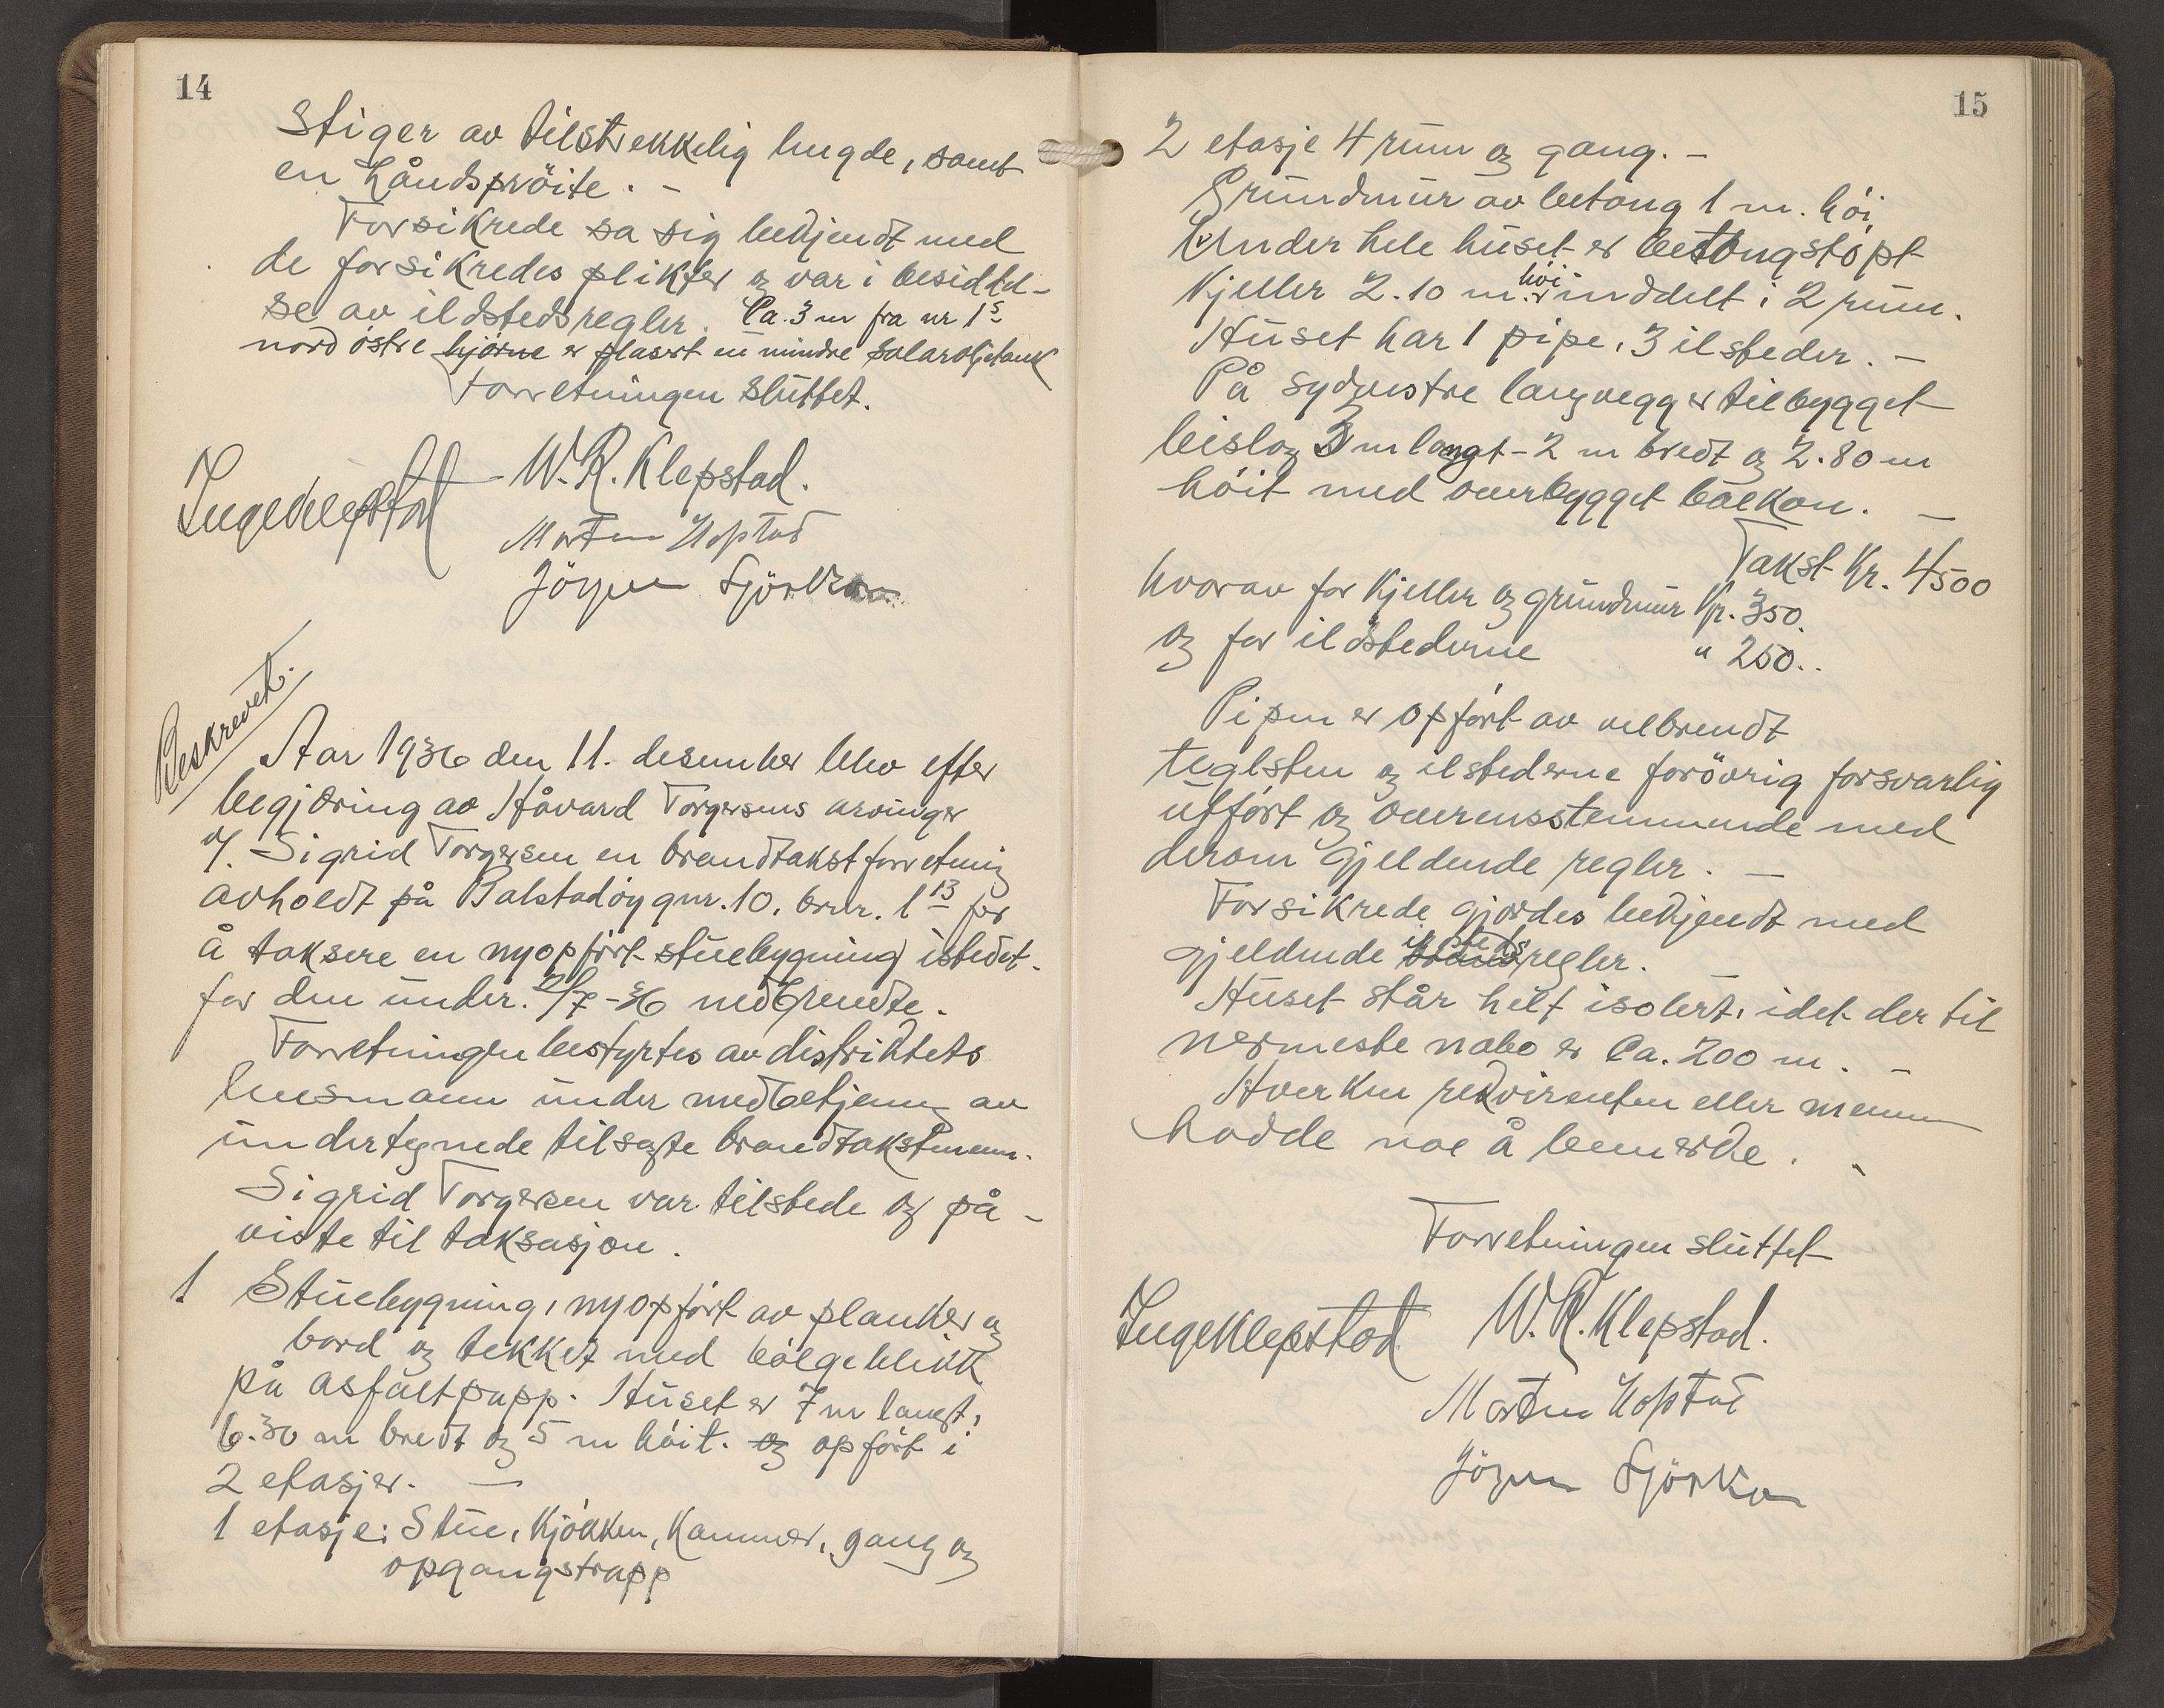 14
Stiger av tilstrekkelig lengde, samt
en håndspröite. -
Forsikrede sa sig bekjendt med
de forsikredes plikter og var i besiddel-
se av ildstedsregler. Ca. 3 m fra nr 1s
nordöstre hjörne er plasert en mindre solaroljetank
Forretningen sluttet.
Inge Klepstad W. R. Klepstad.
Morten Hopstad
Jörgen
Beskrevet.
Aar 1936 den 11. desember blev efter
begjæring av Håvard Torgersens arvinger
v/. Sigrid Torgersen en brandtakstforretning
avholdt på Balstadöy gnr. 10. brnr. 1 13 for
å taksere en nyopfört stuebygning istedet-
for den under. /7-36 nedbrendte.
Forretningen bestyrtes av distriktets
lensmann under medbetjening av
undertegnede tilsagte brandtakstmenn.
Sigrid Torgersen var tilstede og på-
viste til taksasjon.
1 Stuebygning, nyopfört av planker og
bord og tekket med bölgeblikk
på asfaltpapp. Huset er 7 m langt,
6.30 m bredt og 5 m höit. og opfört i
2 etasjer. -
1 etasje: Stue, Kjökken, Kammer, gang og
opgangstrapp
15
2 etasje 4 rum og gang. -
Grundmur av betong 1 m. höi
Under hele huset er betongstöpt
Kjeller 2.10 m. höi inddelt i 2 rum.
Huset har 1 pipe, 3 ilsteder. -
På sydvestre langvegg er tilbygget
beislag 3 m langt - 2 m bredt og 2.80 m
höit med overbygget balkon. -
Takst Kr. 4500
hvorav for Kjeller og grundmur Kr. 350.
og for ildstederne " 250..
Pipen er opfört av velbrendt
teglsten og ilstederne forövrig forsvarlig
utfört og overensstemmende med
derom gjeldende regler. -
Forsikrede gjordes bekjendt med
gjeldende ilsteds regler. -
Huset står helt isolert, idet der til
nermeste nabo er Ca. 200 m. -
Hverken rekvirenten eller mennene
hadde noe å bemerke. -
Forretningen sluttet
Inge Klepstad W. R. Klepstad.
Morten Hopstad
Jörgen